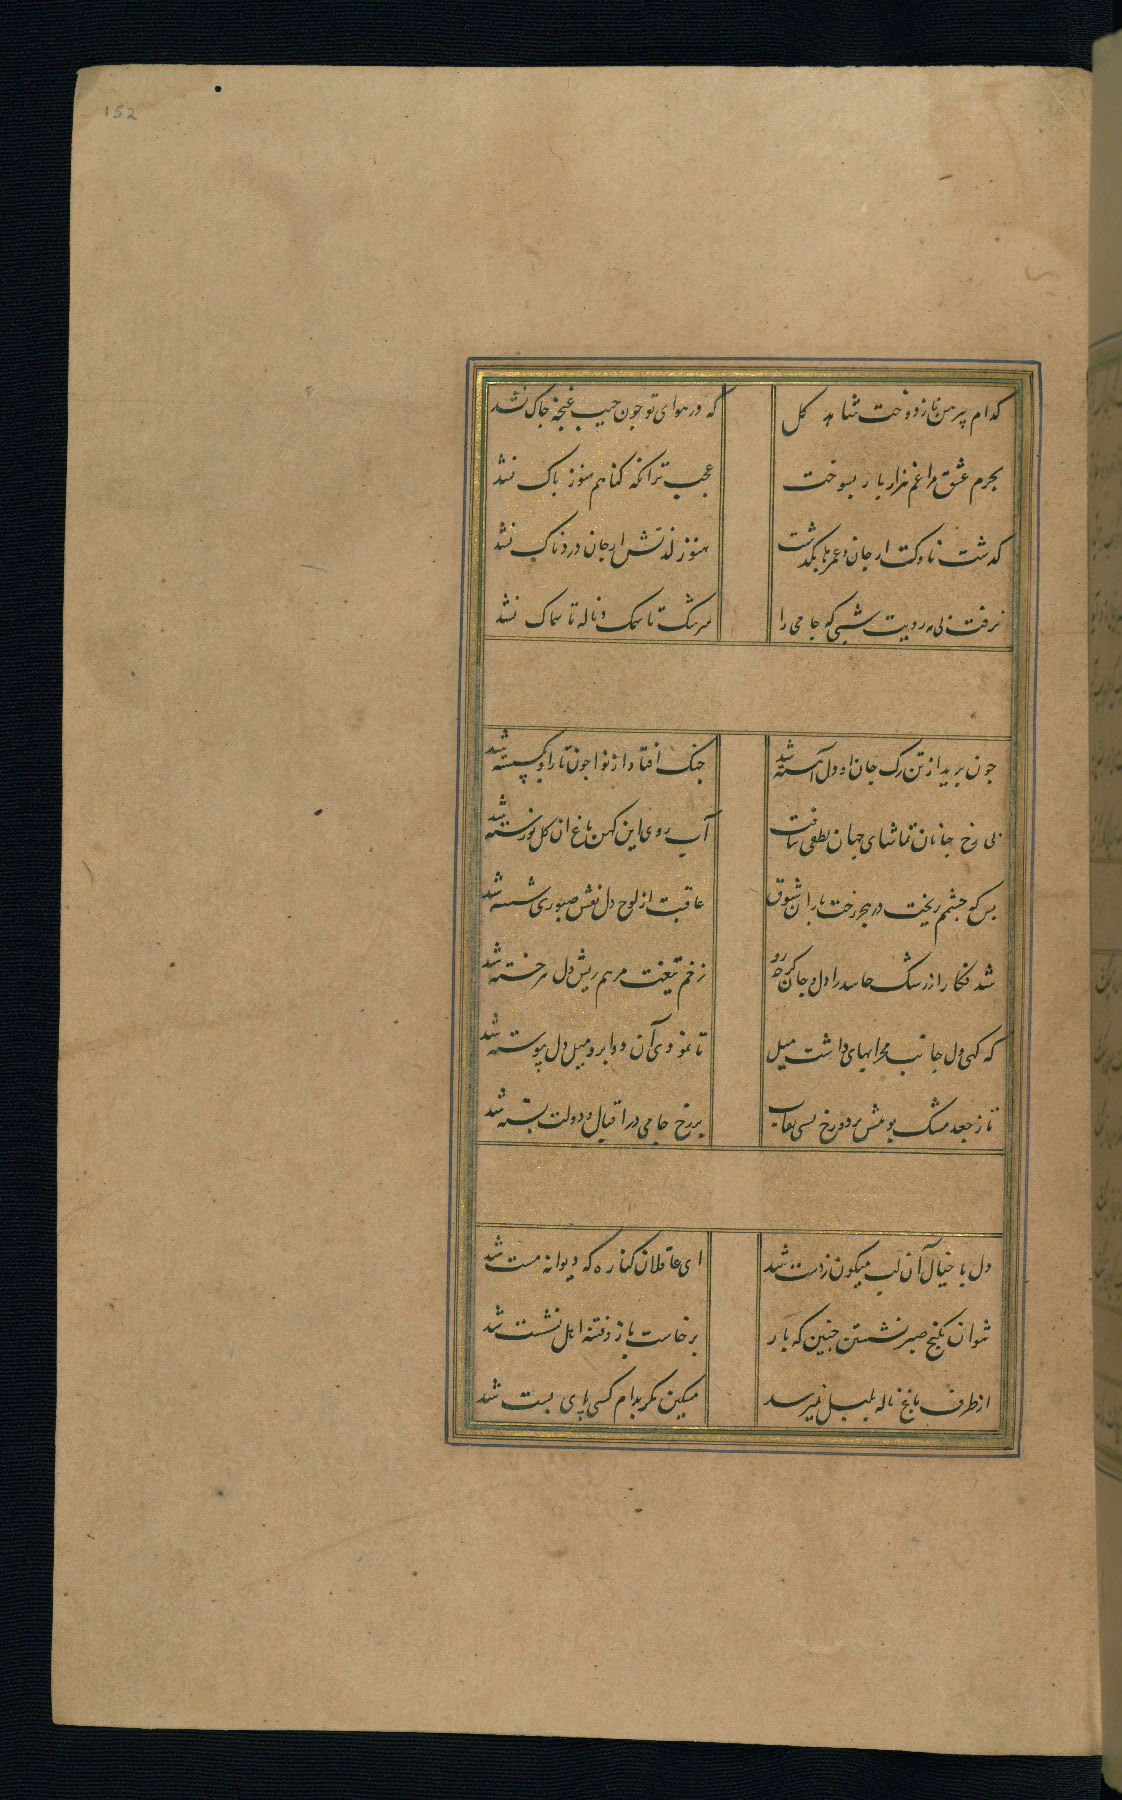 152
کدام پیرهن ناز دوخت شاهد کل
که در هوای تو جون جیب غنجه جاک نشد
بجرم عشق مرا غم هزار بار بسوخت
عجب ترانکه کناهم هنوز باک نشد
کذشت ناوکت از جان و عمرها بکذشت
هنوز لذتش از جان دردناک نشد
نرفت بی مه رویت شبی که جامی را
سرشک تا سمک و ناله تا سماک نشد
جون برید از تن رک جان او دل آهسته شد
جنک افتاد از نوا جون تار او بکسسته شد
بی رخ جانان تماشای جهان لطفی نیافت
آب روی این کهن باغ ان کل نورسته شد
بس که جشمم ریخت در هجر رخت باران شوق
عاقبت از لوح دل نقش صبوری شسته شد
شد فکار از رشک حاسد را دل و جان کرجه رو
زخم تیغت مرهم ریش دل هر خسته شد
که کهی دل جانب محرابهای داشت میل
تا نمودی آن دو ابرو میل دل پیوسته شد
تا ز جعد مشک بو بر رخ نقاب
بر رخ جامی در اقبال و دولت بسته شد
دل با خیال آن لب میکون ز دست شد
ای عاقلان کناره که دیوانه مست شد
نتوان بکنج صبر نشستن جنین که یار
برخاست باز و فتنه اهل نشست شد
از طرف باغ ناله بلبل نمیرسد
مسکین مکر بدام کسی پای بست شد